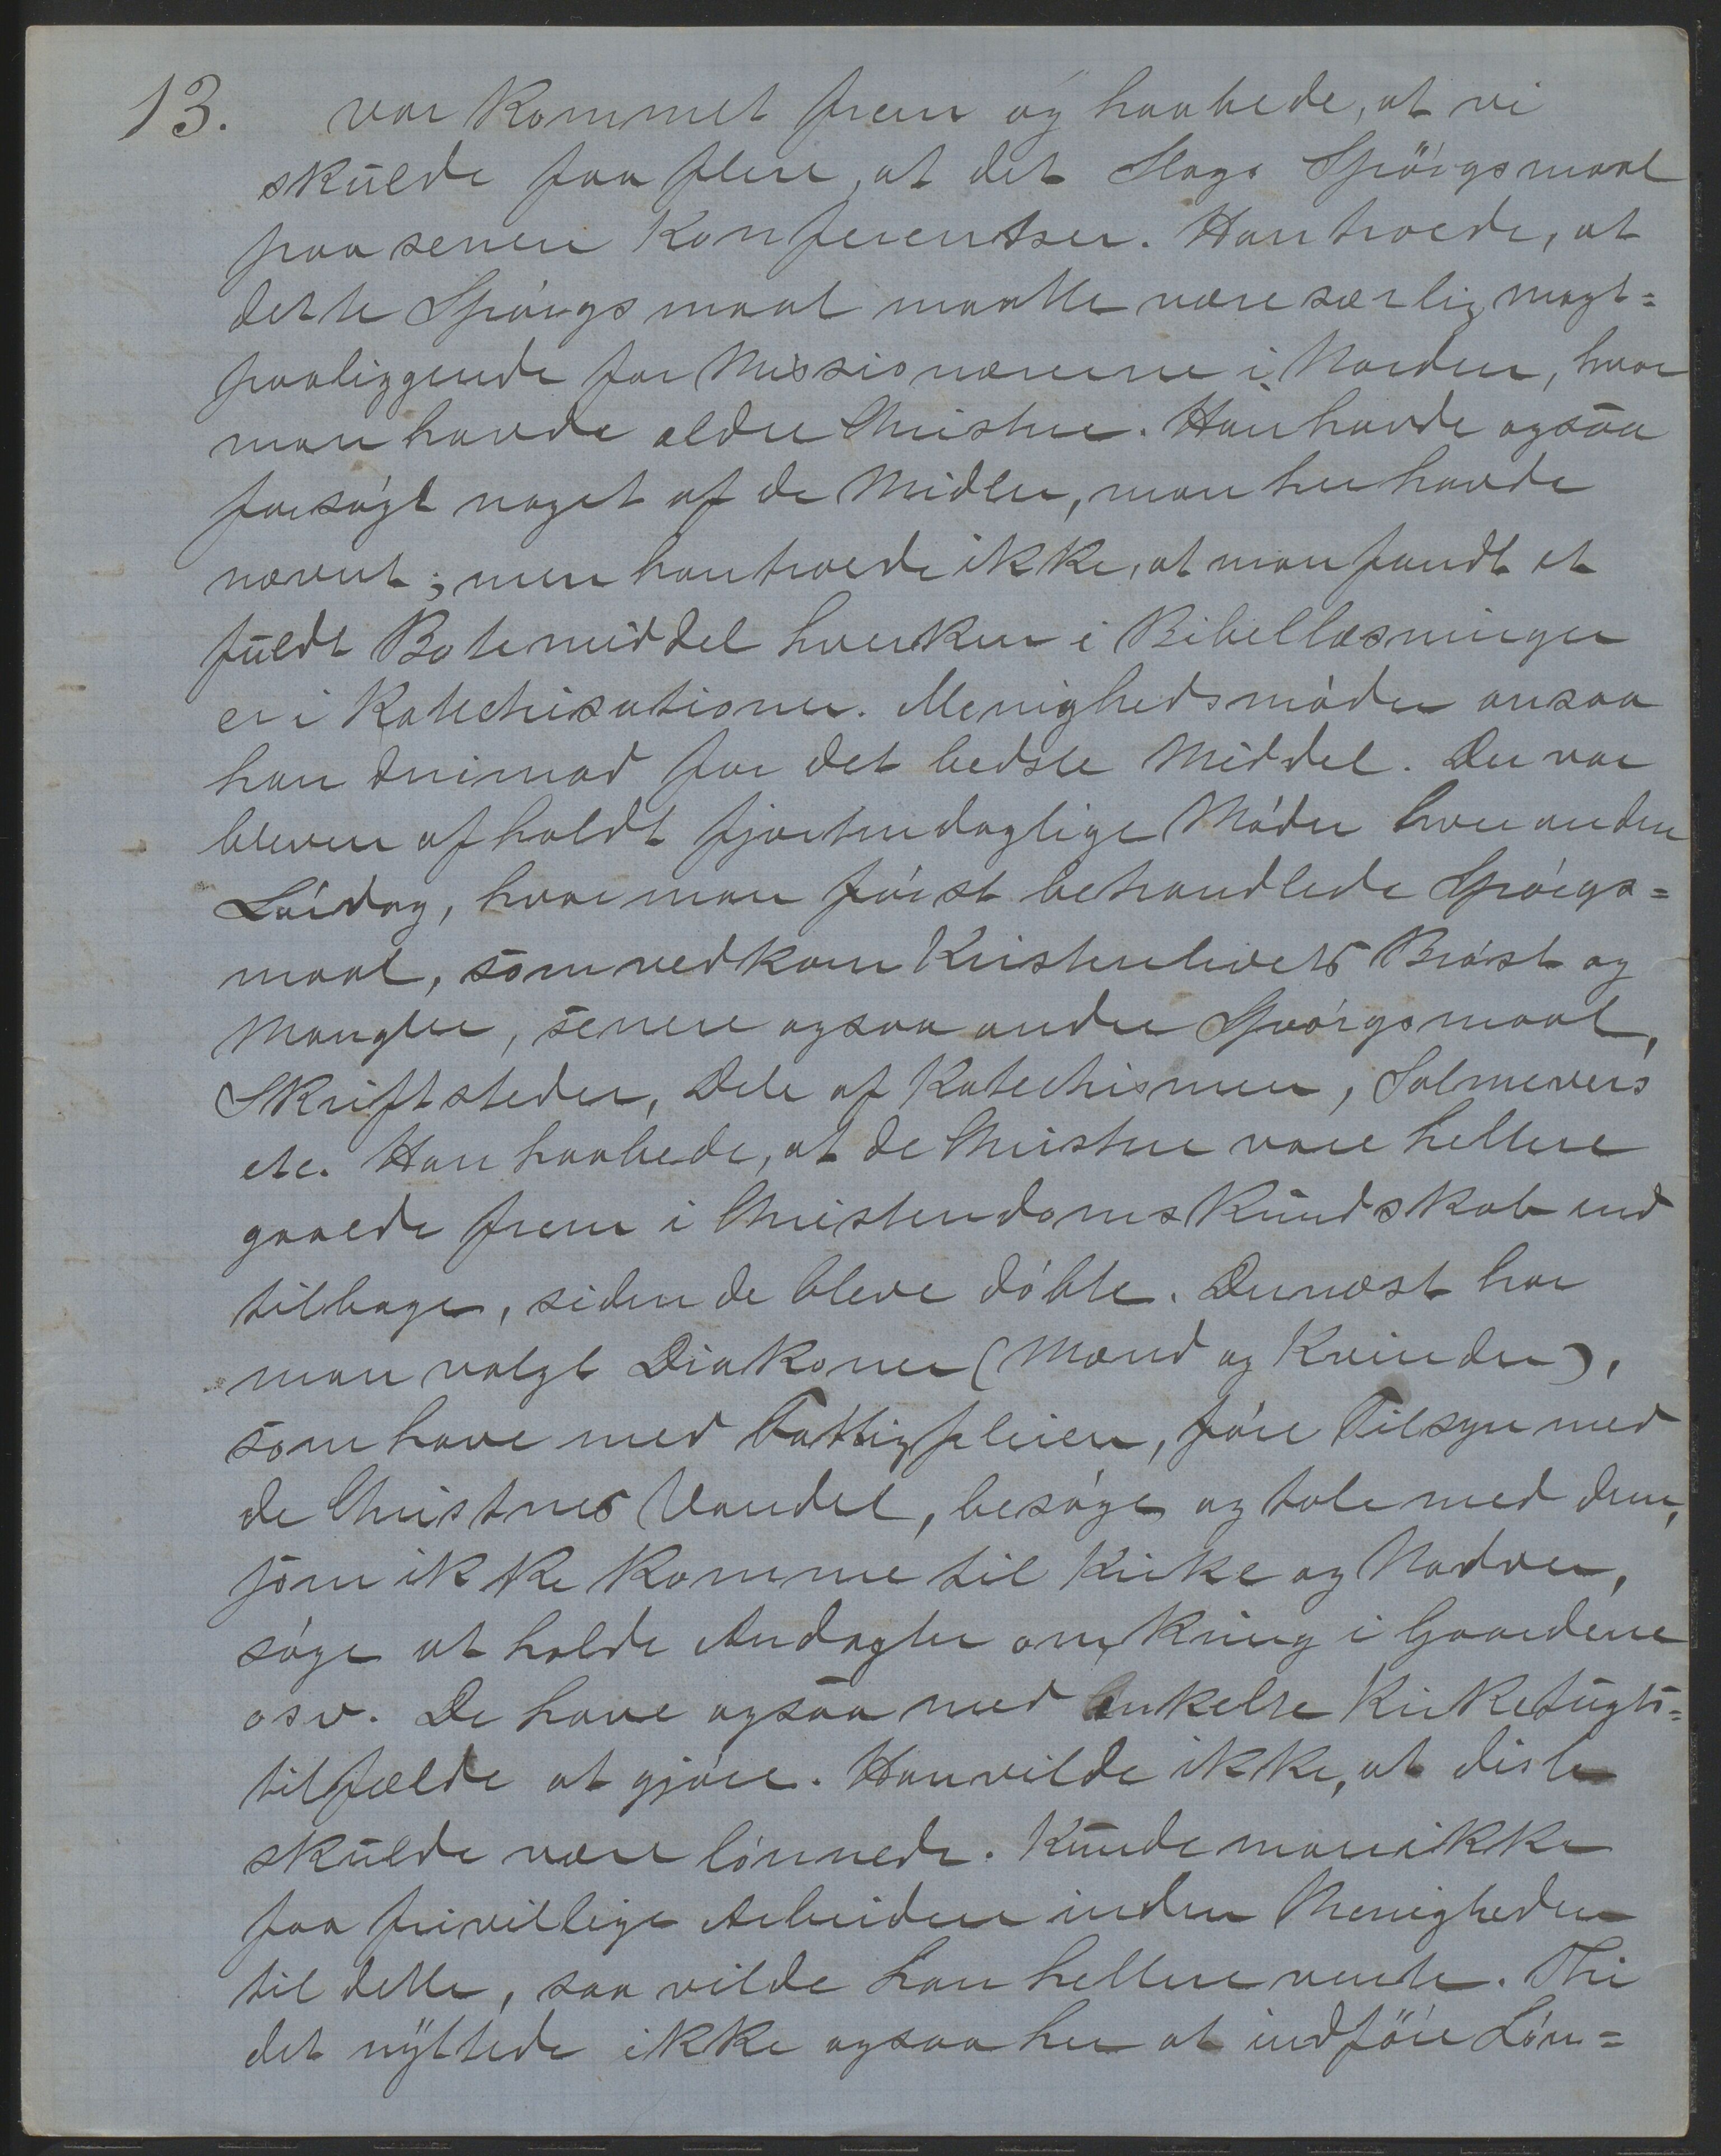 13. var kommet frem og haabede, at vi
skulde faa flere, at det Slags Spörgsmaal
paa senere Konferentser. Han troede, at
dette Spörgsmaal maatte være særlig magt=
paaliggende for Missionærerne i Norden, hvor
man havde ældre Christne. Han havde ogsaa
forsögt noget af de Midler, man her havde
nævnt; men han troede ikke, at man fandt et
fuldt Botemiddel hverken i Bibellæsninger
ei i Katechisationer. Menighedsmöder ansaa
han derimod for det bedste Middel. Der var
bleven afholdt fjortendaglige Möder hver anden
Löidag, hvor man först behandlede Spörgs=
maal, som vedkom Kristenlivets Bröst og
Mangler, senere ogsaa andre Spörgsmaal,
Skriftsteder, Dele af Katechismen, Salmevers
etc. Han haabede, at de Christne vare hellere
gaaede frem i Christendomskundskab end
tilbage, siden de bleve döbte. Dernæst har
man valgt Diakoner (Mænd og Kvinder),
som have med Fattigpleien, före Tilsyn med
de Christnes Vandel, besöge og tale med dem,
som ikke komme til Kirke og Nadver,
söge at holde Andagter omkring i Gaardene
osv. De have ogsaa med enkelte Kirketugts=
tilfælde at gjöre. Han vilde ikke, at disse
skulde være lönnede. Kunde man ikke
faa frivillige Arbeidere inden Menigheden
til dette, saa vilde han hellere vente. Thi
det nyttede ikke ogsaa her at indföre Lön=